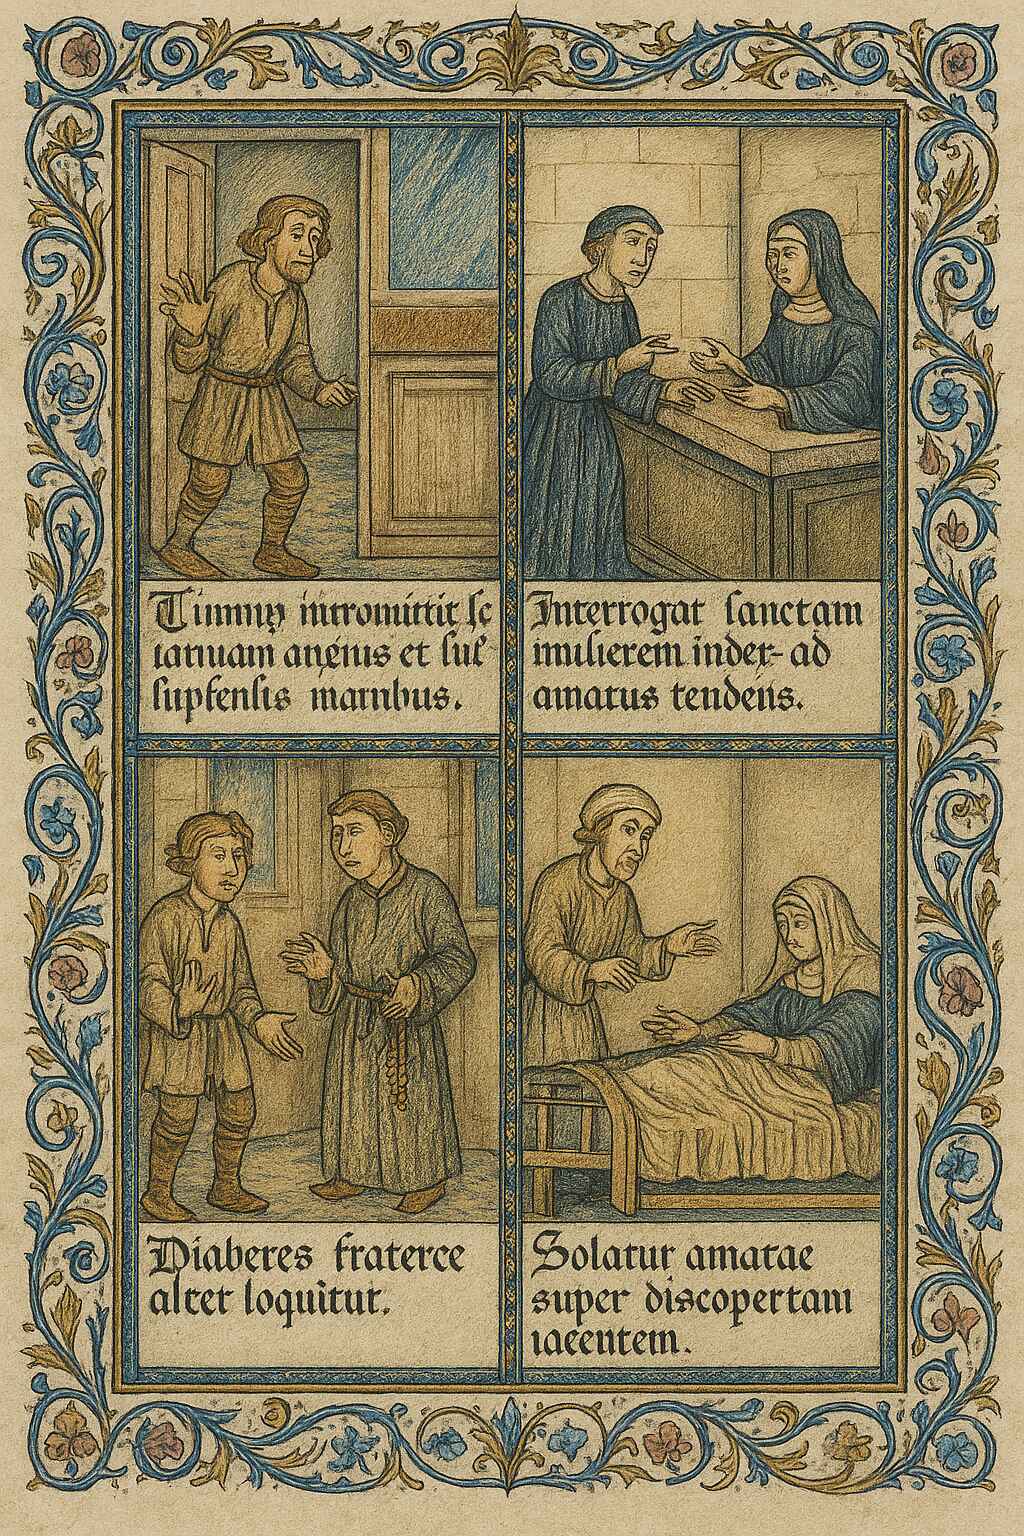 intromittit se
ianuam anenis et sul
supfensis marnbus.
Interrogat sanctam
mulierem index- ad
amatus tendens.
Diaberes fraterce
alter loquitur.
Solatur amatae
super discopertam
iaeentem.